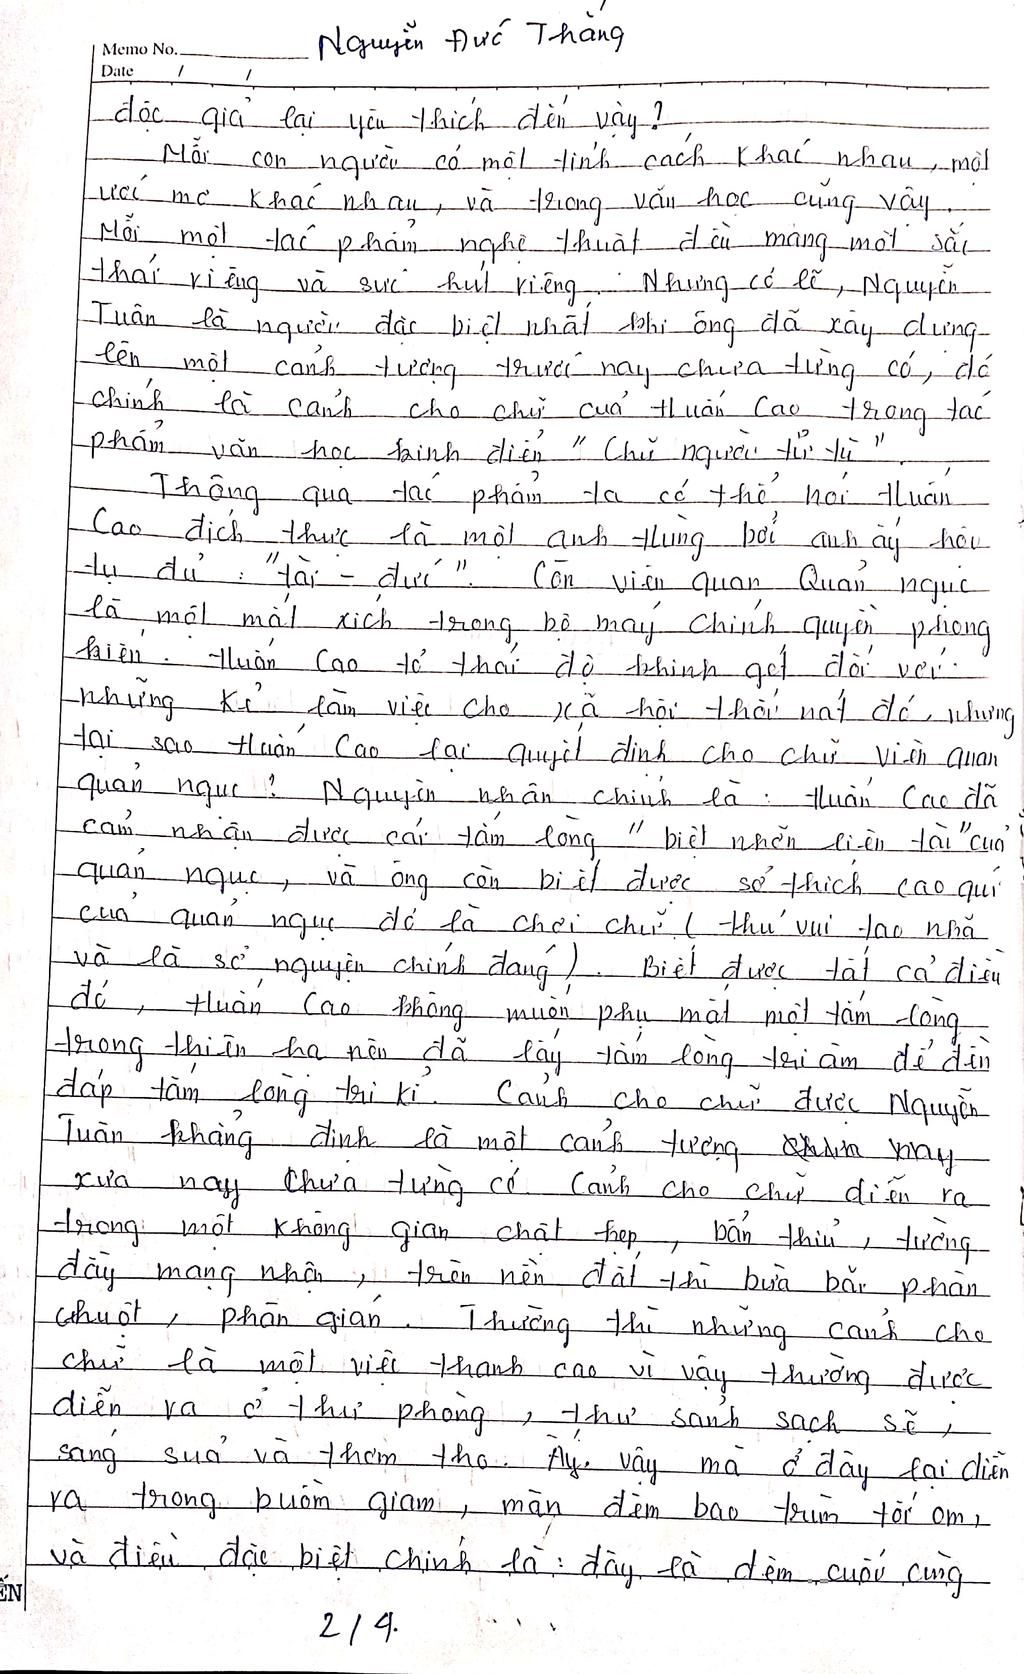 Nguyễn Đức Thắng
Memo No.
Date / /
độc giả lại yêu thích đến vậy?
Mỗi con người có một tính cách khác nhau, một
ước mơ khác nhau, và trong văn học cũng vậy.
Mỗi một tác phẩm nghệ thuật đều mang một sắc
thái riêng và sức hút riêng. Nhưng có lẽ, Nguyễn
Tuân là người đặc biệt nhất khi ông đã xây dựng
lên một cảnh tượng trước nay chưa từng có, đó
chính là cảnh cho chữ của Huấn Cao trong tác
phẩm văn học kinh điển "Chữ người tử tù".
Thông qua tác phẩm ta có thể nói Huấn
Cao đích thực là một anh hùng bởi anh ấy hội
tụ đủ: "tài - đức". Còn viên quan Quản ngục
là một mắt xích trong bộ máy chính quyền phong
kiến. Huấn Cao tỏ thái độ khinh gét đối với
những kẻ làm việc cho xã hội thối nát đó, nhưng
tại sao Huấn Cao lại quyết định cho chữ viên quan
quản ngục? Nguyên nhân chính là: Huấn Cao đã
cảm nhận được cái tấm lòng "biệt nhỡn liên tài" của
quản ngục, và ông còn biết được sở thích cao quí
của quản ngục đó là chơi chữ (thú vui tao nhã
và là sở nguyện chính đáng). Biết được tất cả điều
đó, Huấn Cao không muốn phụ mất một tấm lòng
trong thiên hạ nên đã lấy tấm lòng tri âm để đền
đáp tấm lòng tri kỉ. Cảnh cho chữ được Nguyễn
Tuân khẳng định là một cảnh tượng nay
xưa nay chưa từng có. Cảnh cho chữ diễn ra
trong một không gian chật hẹp, bẩn thỉu, tường
đầy mạng nhện, trên nền đất thì bừa bãi phân
chuột, phân gián. Thường thì những cảnh cho
chữ là một việc thanh cao vì vậy thường được
diễn ra ở thư phòng, thư sảnh sạch sẽ,
sáng sủa và thơm tho. Ấy vậy mà ở đây lại diễn
ra trong buồm giam, màn đêm bao trùm tối om,
và điều đặc biệt chính là: đây là đêm cuối cùng
ẾN
2/4.